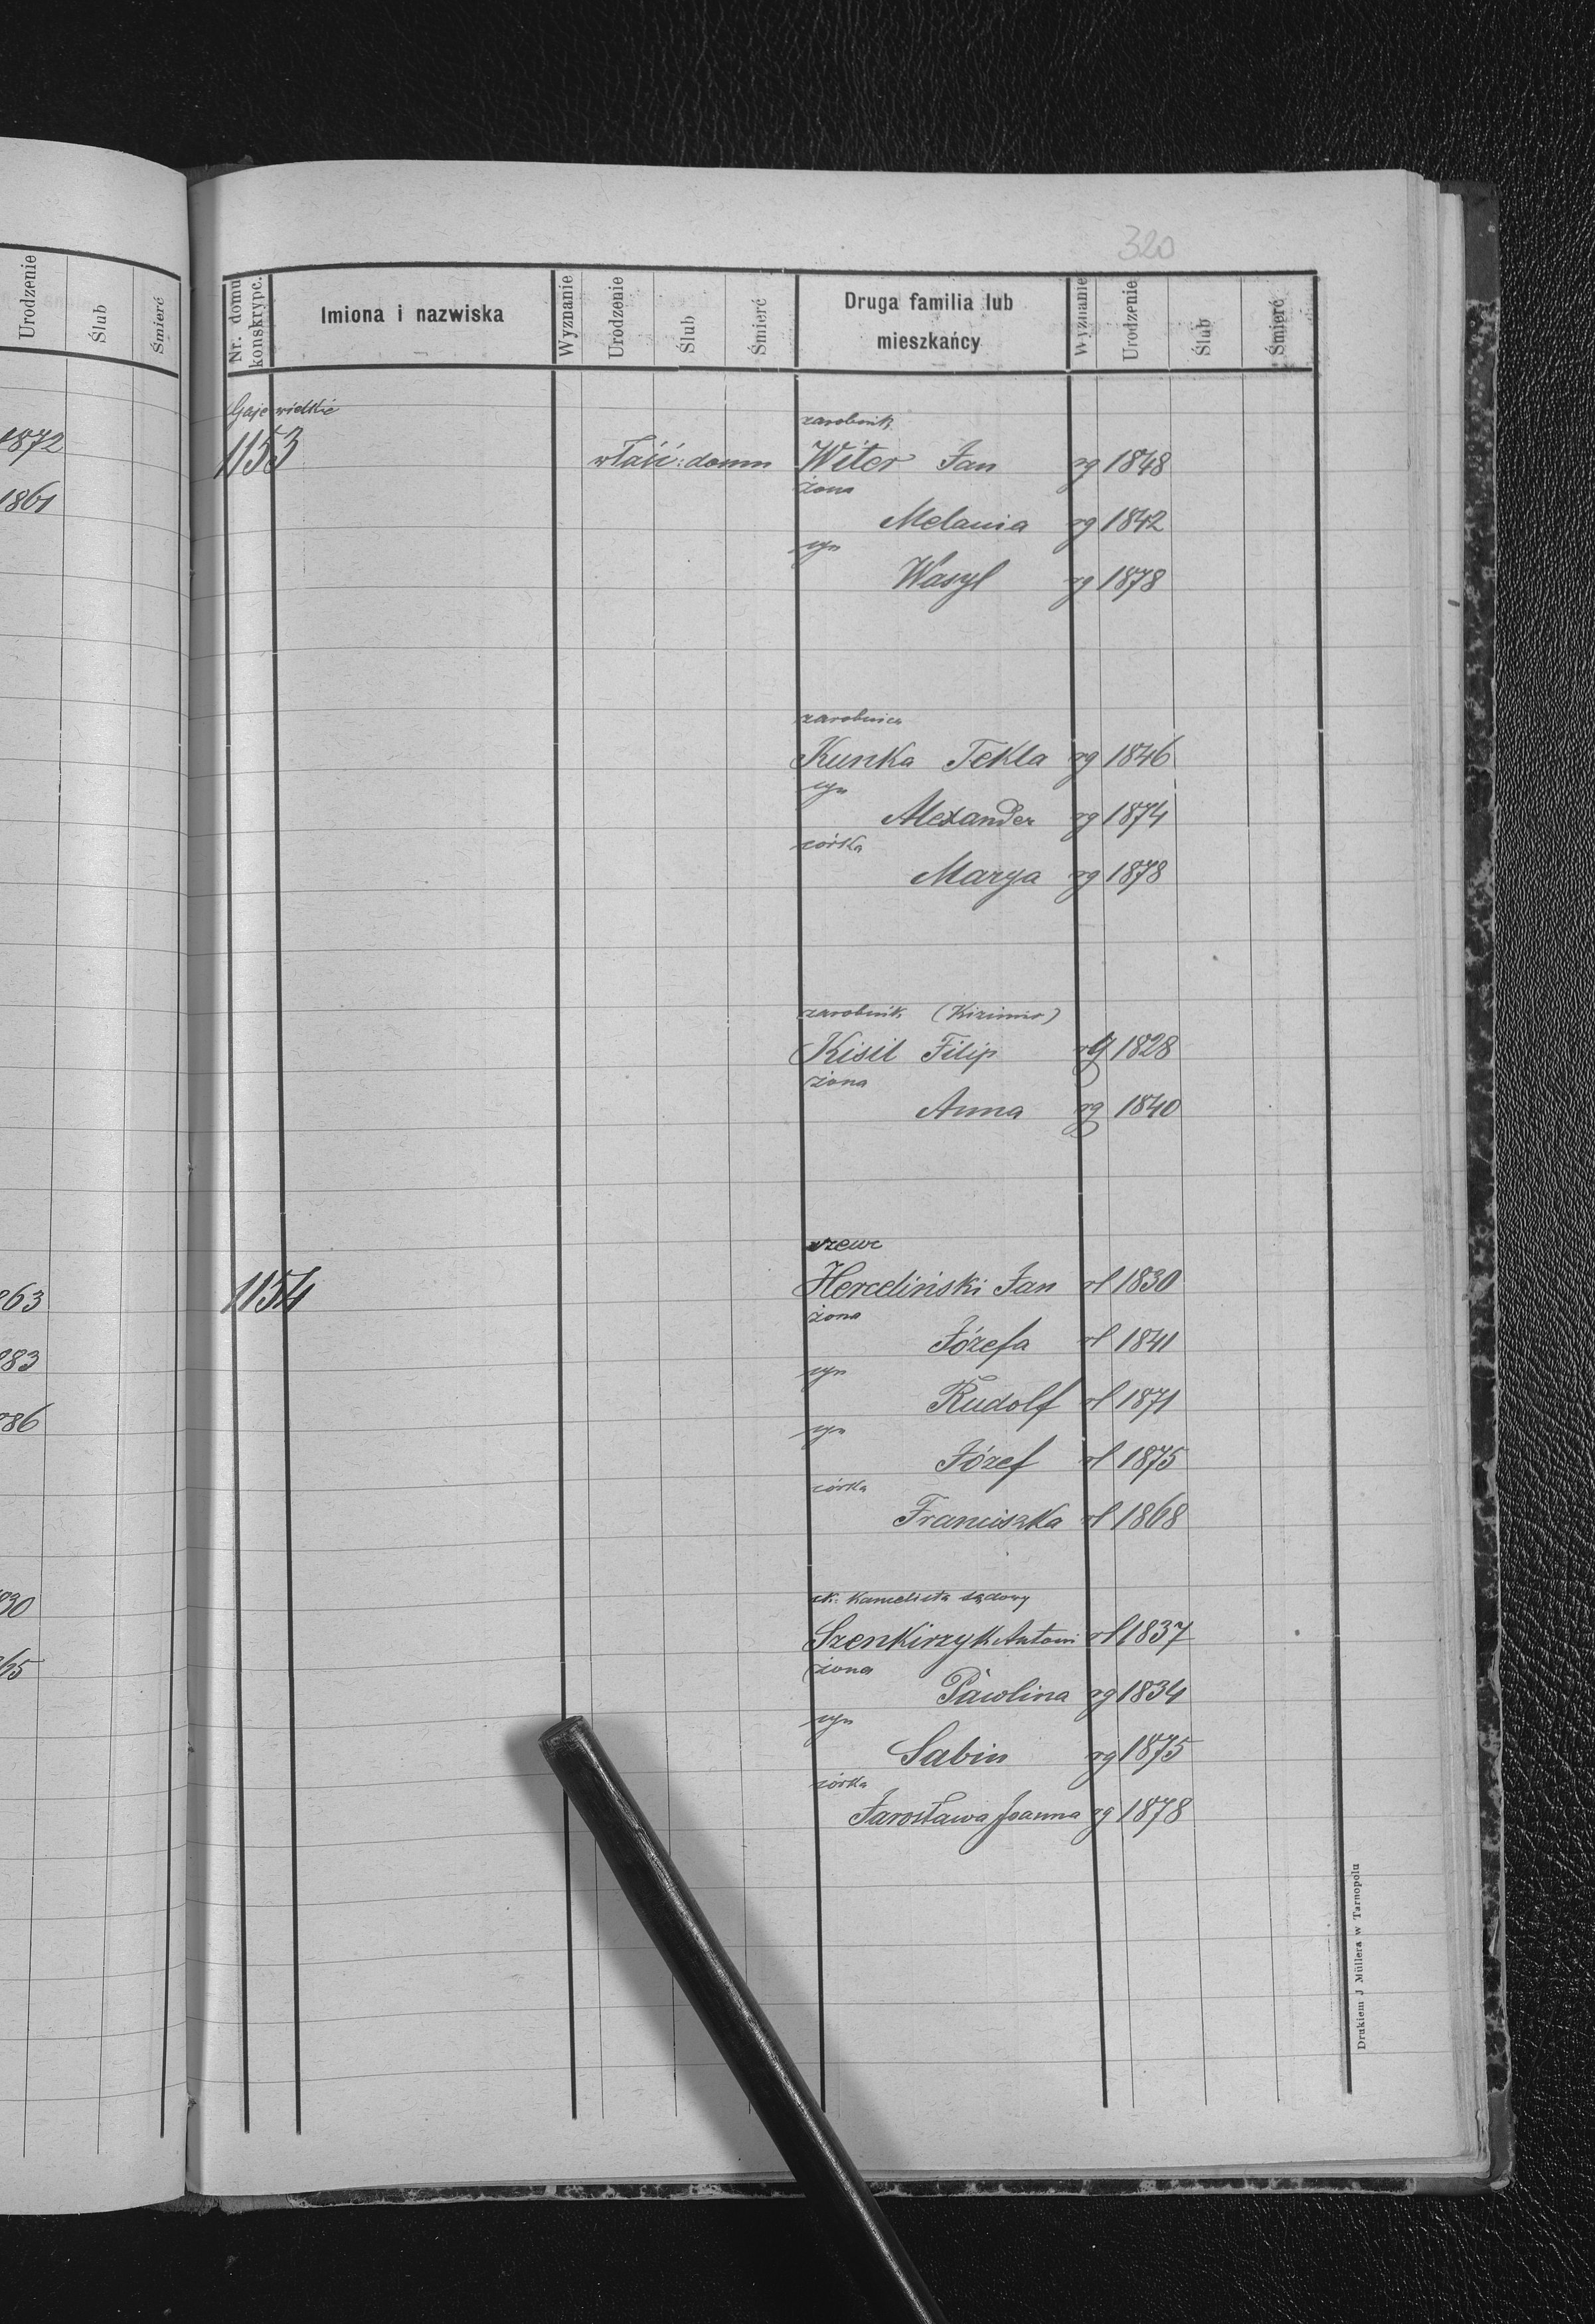 320
Urodzenie Ślub Śmierć
Nr. domu konskrypc. Imiona i nazwiska Wyznanie Urodzenie Ślub Śmierć Druga familia lub mieszkańcy Wyznanie Urodzenie Ślub Śmierć
1872
1861
863
883
886
830
865
Gaje wielkie
zarobnik
1153 właść: domu Witer Jan rg 1848
żona
Melania rg 1842
syn
Wasyl rg 1878
zarobnica
Kunka Tekla rg 1846
syn
Alexander rg 1874
córka
Marya rg 1878
zarobnik (Kizimir)
Kisil Filip rg 1828
żona
Anna rg 1840
szewc
1154 Herceliński Jan rl 1830
żona
Józefa rl 1841
syn
Rudolf rl 1871
syn
Józef rl 1875
córka
Franciszka rl 1868
ck. kancelista sądowy
Szenkirzyk Antoni rl 1837
żona
Pawlina rg 1834
syn
Sabin rg 1875
córka
Jarosława Joanna rg 1878
Drukiem J Müllera w Tarnopolu